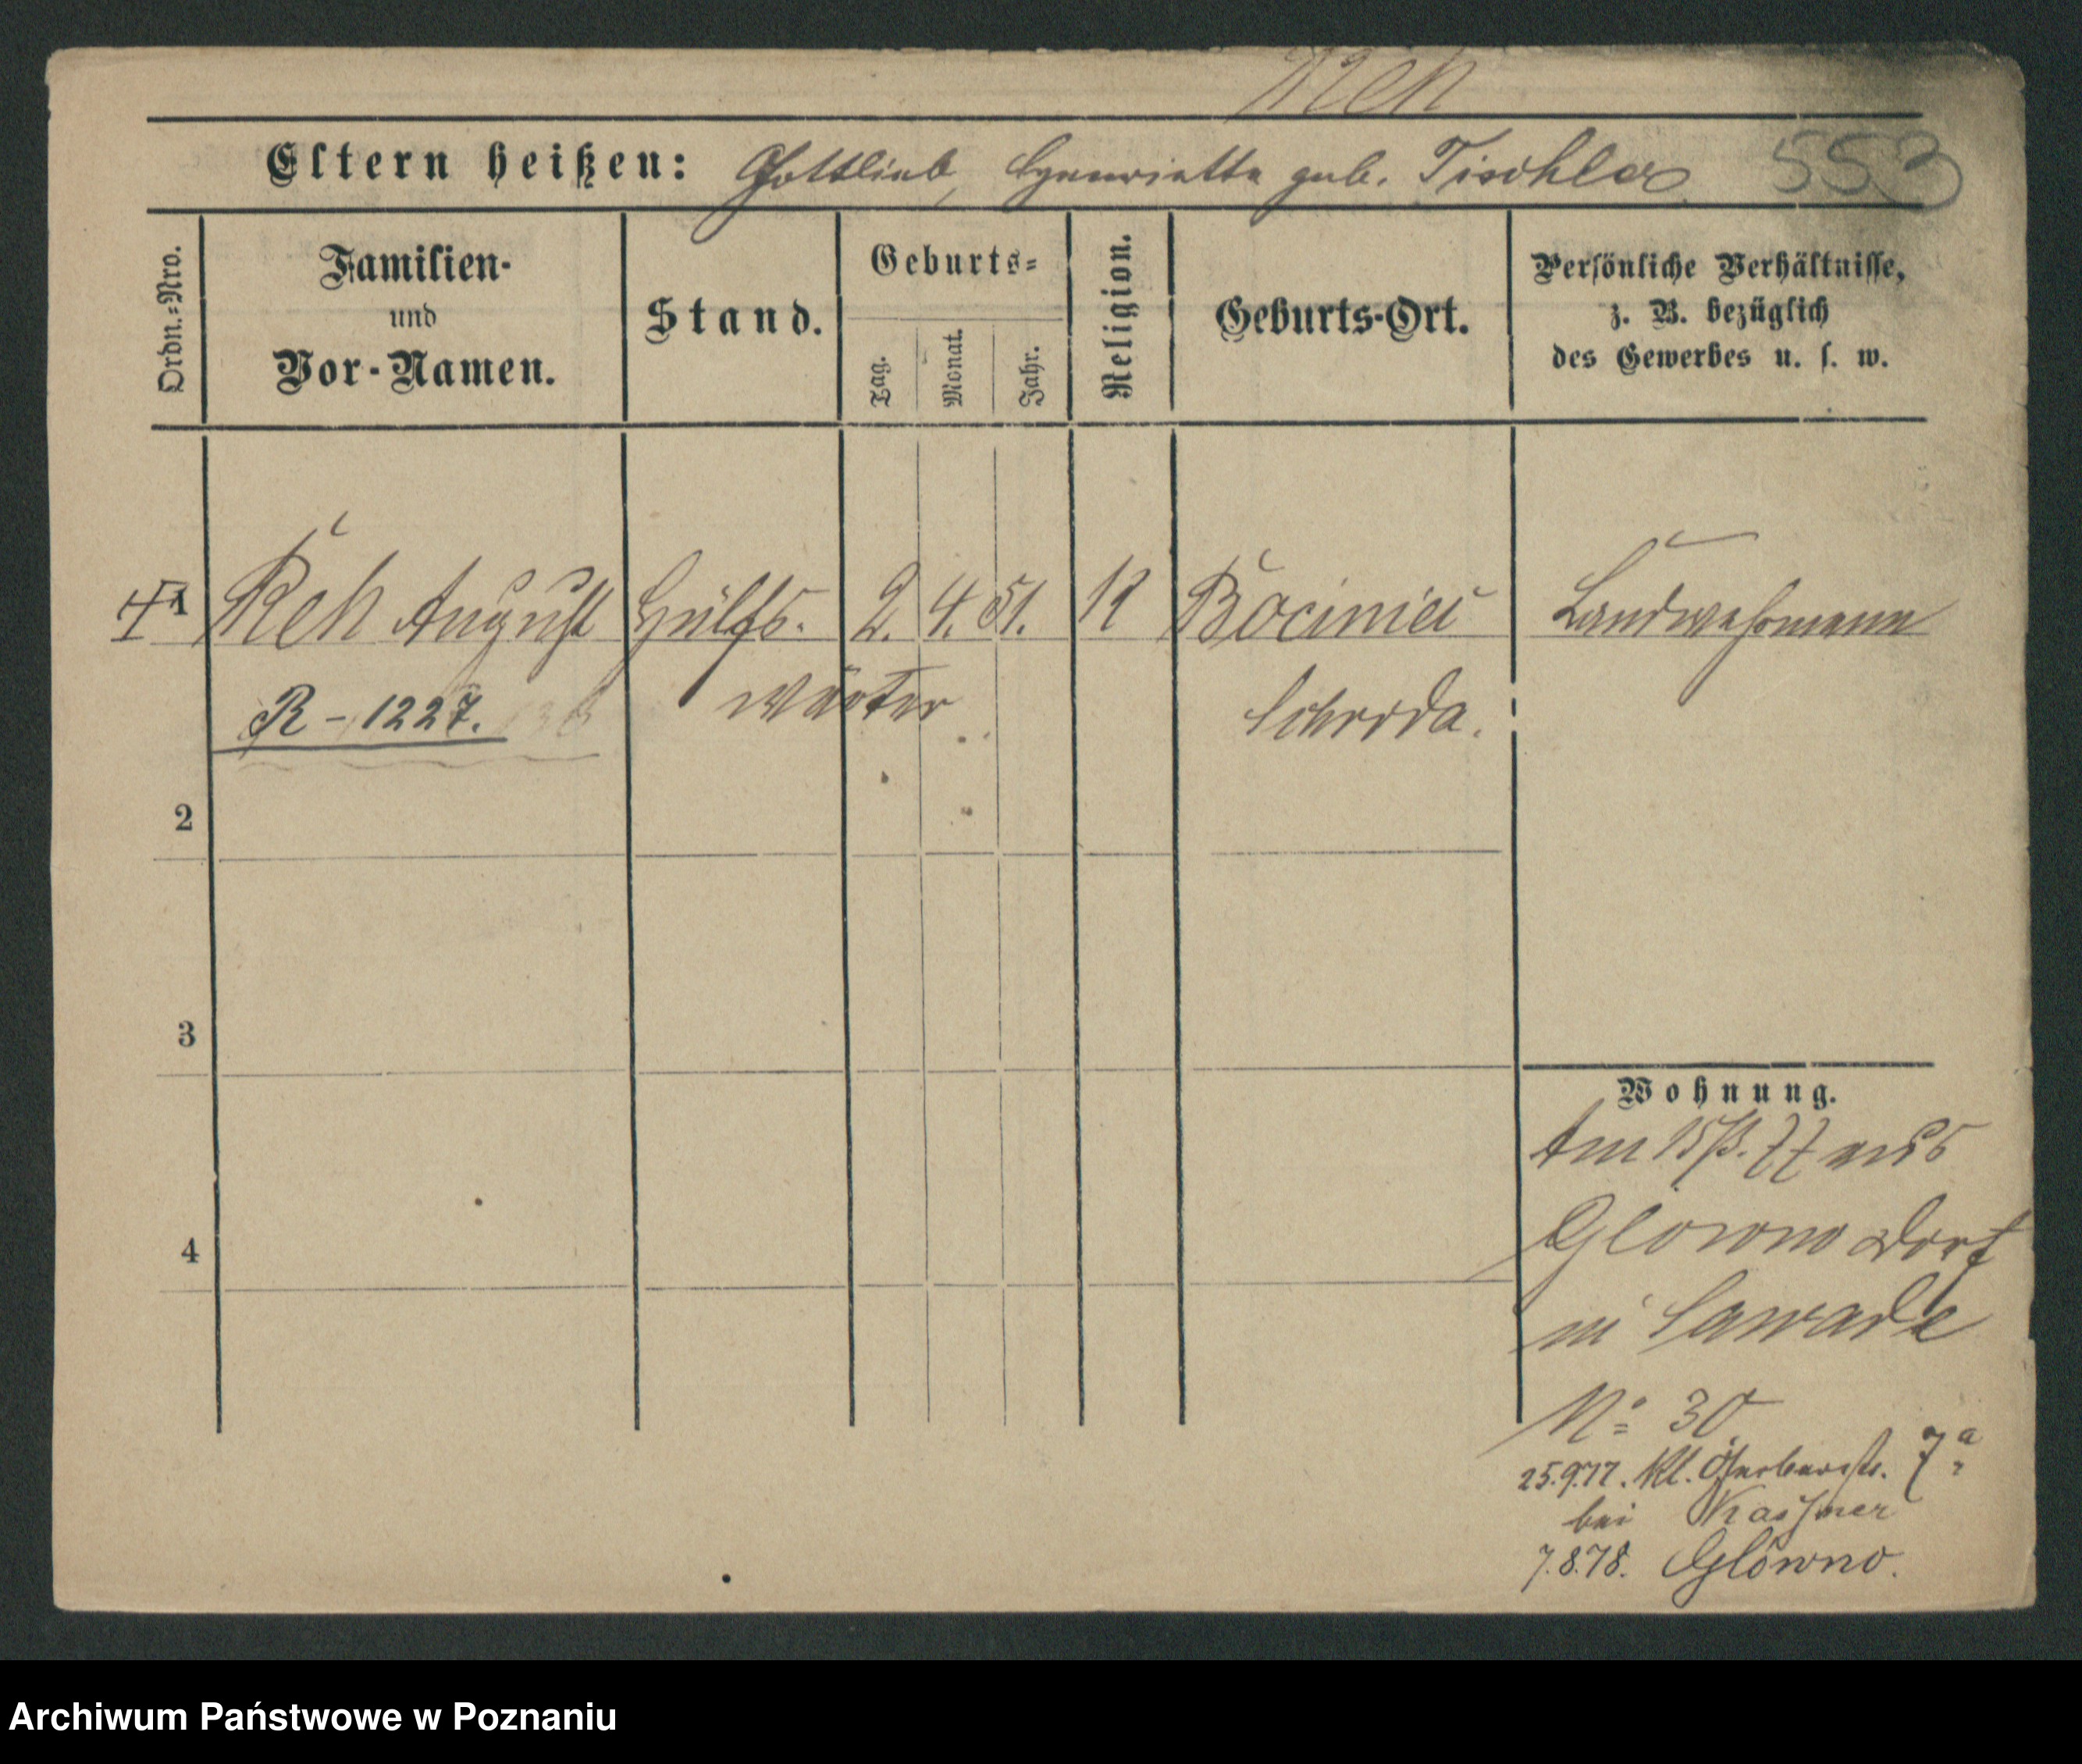 Reh
Eltern heißen: Gottlieb, Henriette geb. Tischler
553
Ordn.=Nro.
Familien-
und
Vor-Namen.
Stand.
Geburts=
Tag.
Monat.
Jahr.
Religion.
Geburts-Ort.
Persönliche Verhältnisse,
z. B. bezüglich
des Gewerbes u. s. w.
1 Reh August Hülfs- 2. 4. 51. Landwehrmann
R - 1227. wärter Schroda.
2
3
4
Wohnung.
Am 15/3. 77 aus
Glówno Dorf
in Sawade
No 30
25.9.77. Kl. 7a
bei
7.8.78. Glówno.
Archiwum Państwowe w Poznaniu